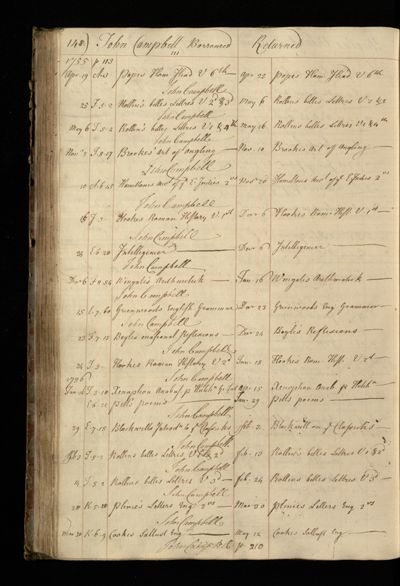 148) John Campbell Borrowed Returned
1755 p 113
Apr. 19 Popes Hom. Iliad V 6th — Apr 22 Popes Hom. Iliad V 6th
John Campbell
23 I.5.2 Rollin's belles Lettres V 2d &3 May 6 Rollins belles Lettres V 2 &3
John Campbell
May 6 I.5.2 Rollin's belles Lettres V 4th May 26 Rollins belles Lettres V 4th
John Campbell
Nov. Brookes' Art of angling — Nov. 10 Brookes Art of Angling
John Campbell
10 Hamiltons E. Indies 2 Nov 20 Hamiltons E Indies 2
John Campbell
Hookes Roman History V 1st Dec 6 Hookes Rom. Hist. V 1st
John Campbell
E.6.20 Intelligencer — Dec 6 Intelligencer
John Campbell
Dec 6 Wingates Arithmetick — Jan 16 Wingates Arithmetick
John Campbell
15 Greenwoods English Grammar Dec 23 Greenwoods Eng Grammar
John Campbell
23 Boyles occasional Reflexions — Dec 24 Boyle's Reflexions
John Campbell
24 Hookes Roman History V 2d Jan. 13 Hookes Rom Hist. V 2d
1756 John Campbell
Xenophon Anabas. Xenophon Anab.
Pitts poems Jan. 29 Pitts poems
John Campbell
29 E.7.15 Blackwall's Classicks Feb. 2 Blackwall on Classicks
John Campbell
Feb 2 I.5.2 Rollins belles Lettres V Feb. 13 Rollin's belles Lettres V
John Campbell
I.5.2 Rollins belles Lettres V 3d Feb. 24 Rollins belles Lettres V 3d
John Campbell
Plinie's Letters Eng. 2 Mar 30 Plinies Letters Eng. 2
John Campbell
Mar 30 K.6.9 Cookes Sallust Eng — May 12 Cookes Sallust Eng
John Campbell p 210